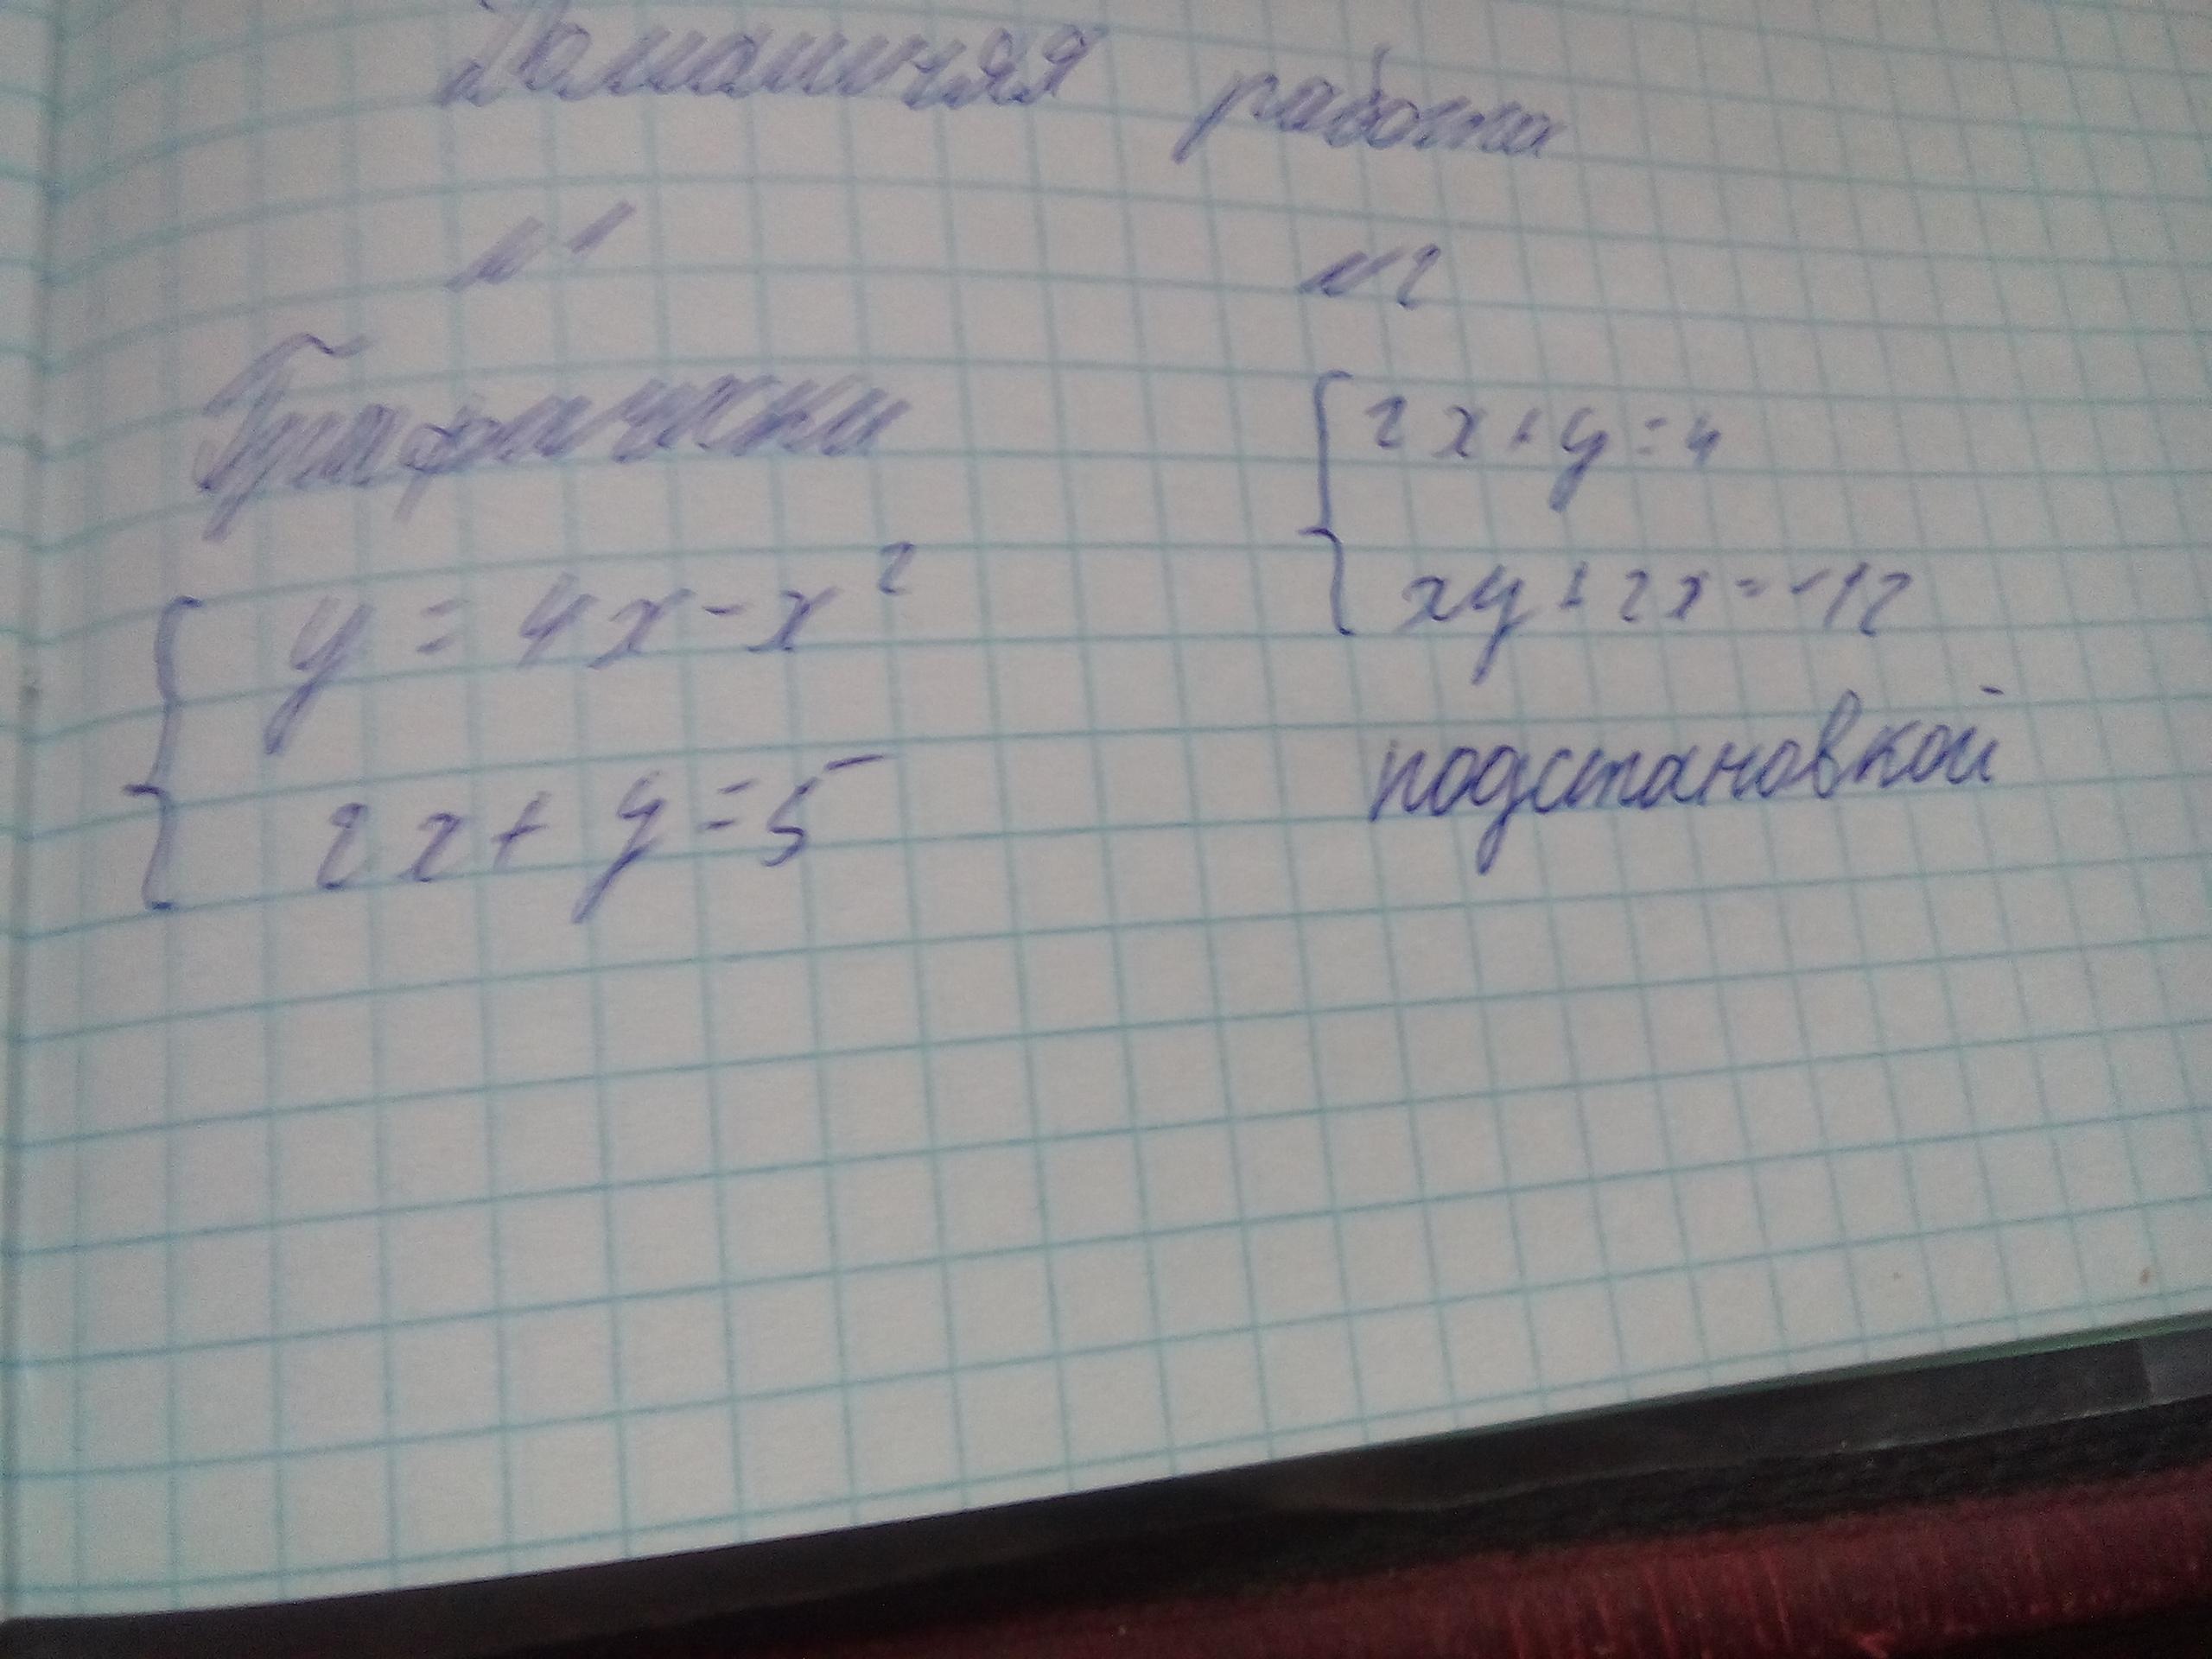 Домашняя работа
№1
Графически
y = 4x - x²
2x + y = 5
№2
2x + y = 4
xy + 2x = -12
подстановкой